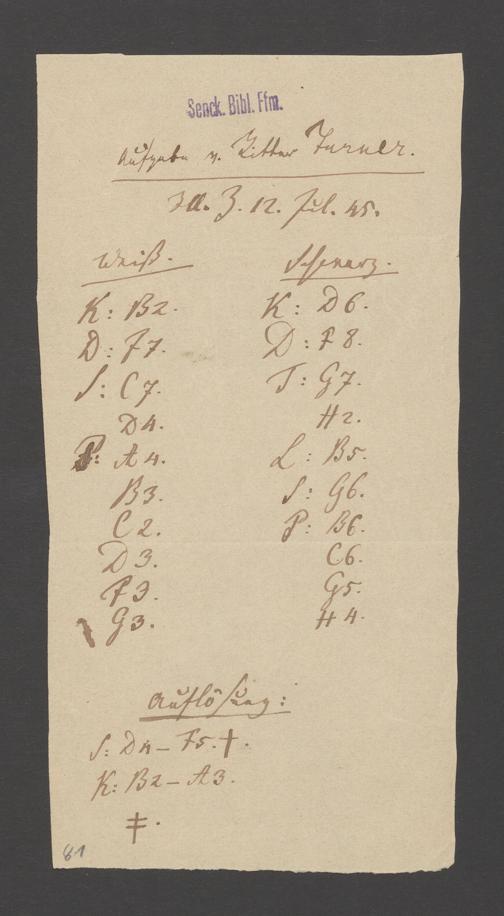 Senck. Bibl. Ffm.
Aufgabe v. Ritter Turner.
Ill. Z. 12. Jul. 45.
Weiß. Schwarz.
K: B2. K: D6.
D: F7. D: F8.
S: C7. T: G7.
D4. H2.
P: A4. L: B5.
B3. S: G6.
C2. P: B6.
D3. C6.
F3. G5.
G3. H4.
Auflösung:
S: D4 – F5. †.
K: B2 – A3.
‡.
81